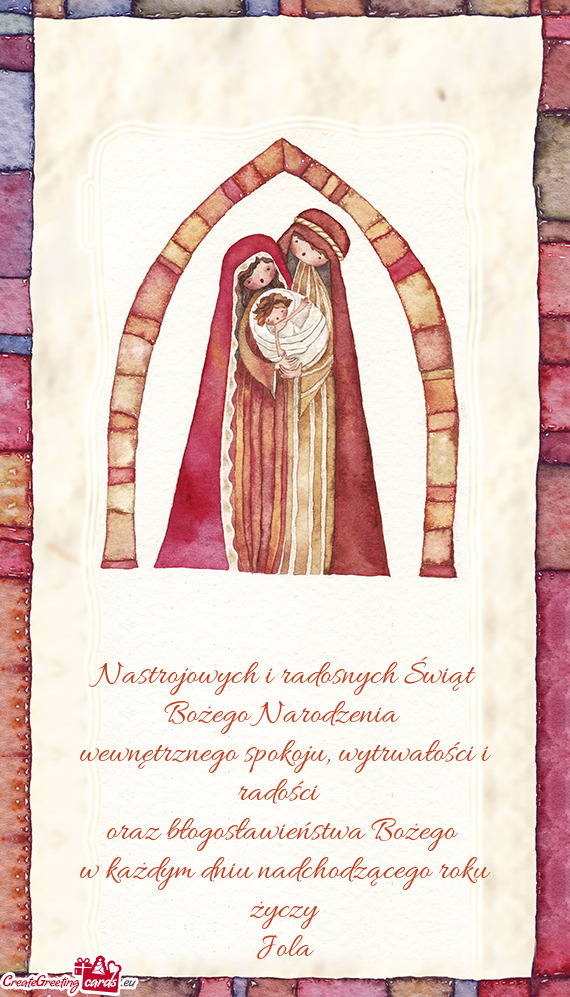 Nastrojowych i radosnych Świąt
Bożego Narodzenia
wewnętrznego spokoju, wytrwałości i
radości
oraz błogosławieństwa Bożego
w każdym dniu nadchodzącego roku
życzy
Jola
CreateGreeting cards .eu